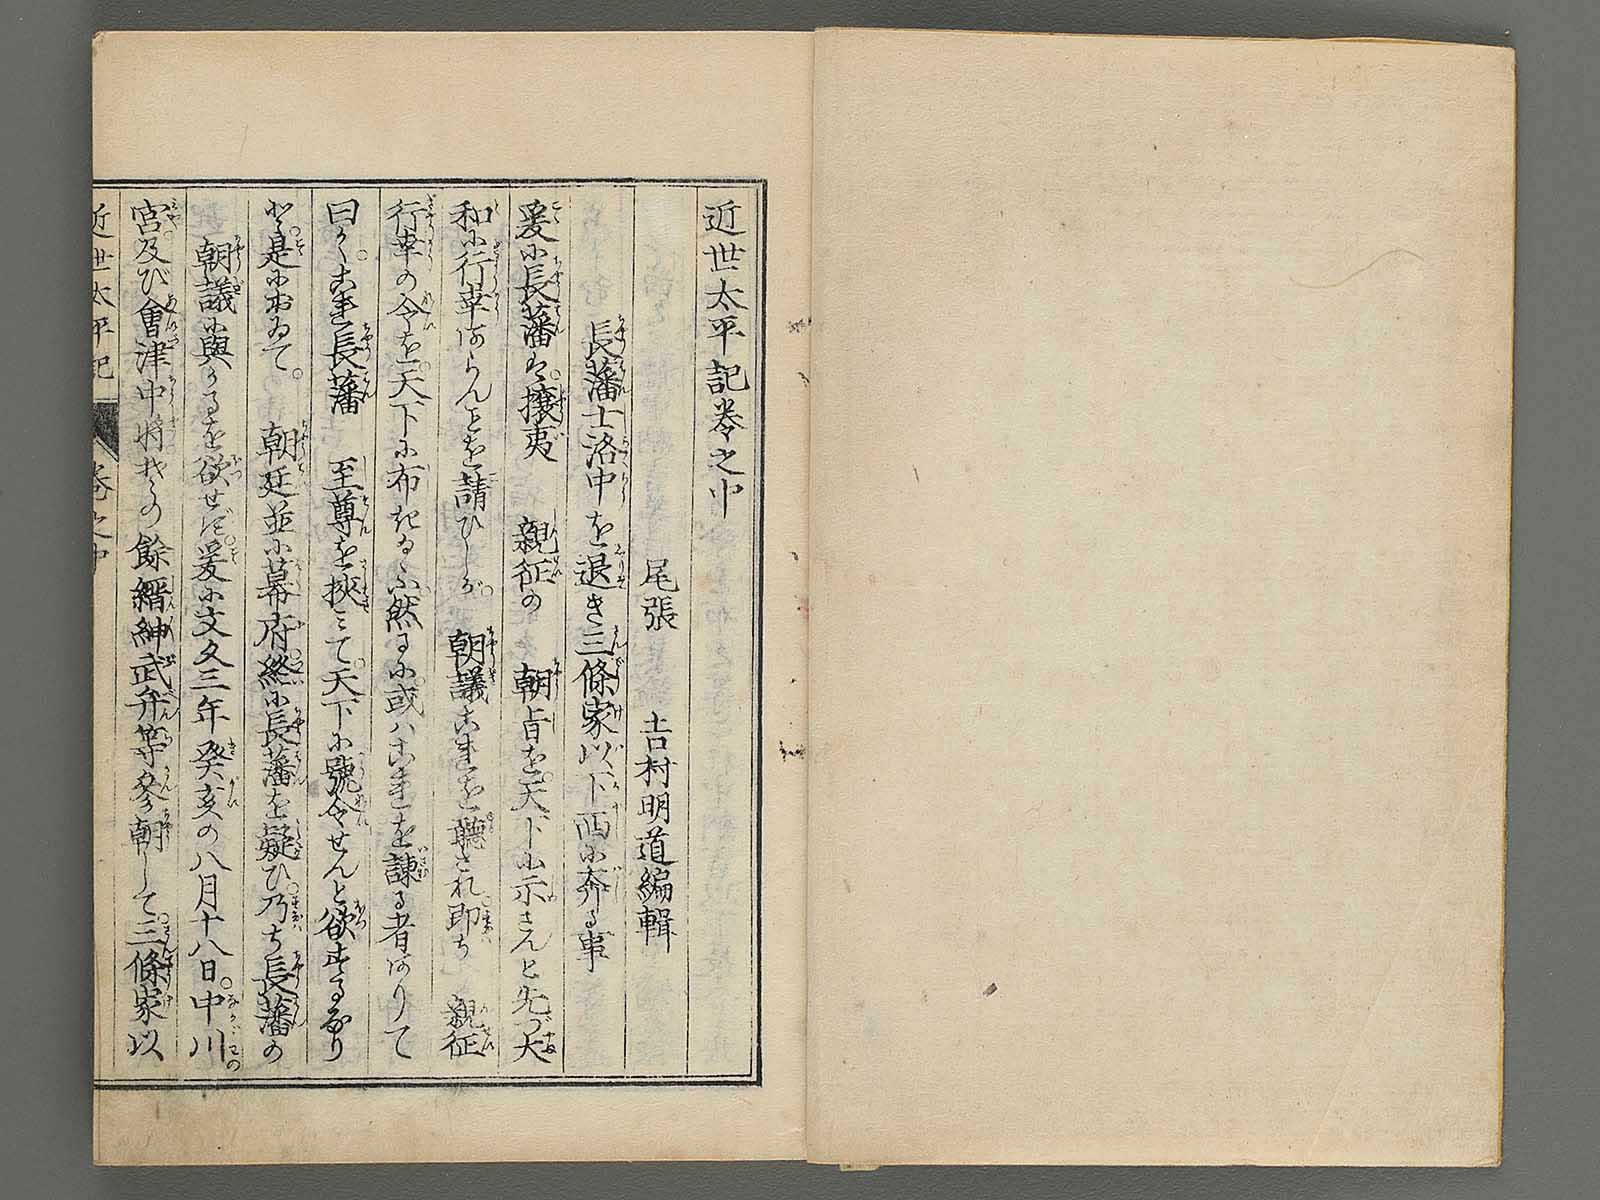 近世太平記巻之中
尾張　吉村明道編輯
長藩士洛中を退き三條家以下西に奔る事
爰に長藩は攘夷　親征の　朝旨を天下に示さんと先づ大
和に行幸あらんことを請ひしが　朝議これを聴され即ち　親征
行幸の令を天下に布きぬ然るに或ハこれを諫る者ありて
曰くこれ長藩　至尊を挾みて天下に號令せんと欲するなり
と是に於ゐて　朝廷並に幕府終に長藩を疑ひ乃ち長藩の
朝議に與かるを欲せず爰に文久三年癸亥の八月十八日中川
宮及び會津中將その餘縉紳武弁等參朝して三條家以
近世太平記　巻之中